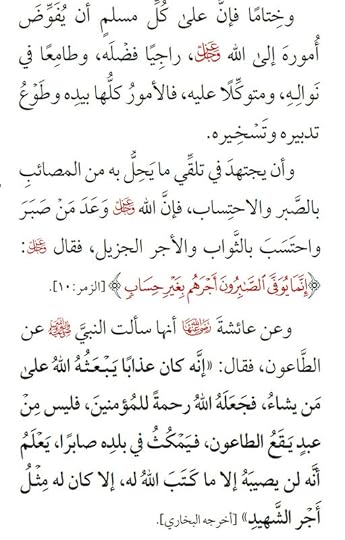 وخِتامًا فإنَّ علىٰ كُلِّ مسلمٍ أن يُفَوِّضَ
أُمورهَ إلىٰ الله ﷿، راجيًا فضْلَه، وطامِعًا في
نَوالِهِ، ومتوكِّلًا عليه، فالأمورُ كلُّها بيدِه وطَوْعُ
تدبيره وتَسْخِيره.
وأن يجتهدَ في تلقِّي ما يَحِلُّ به من المصائبِ
بالصَّبر والاحتِساب، فإنَّ الله ﷿ وَعَدَ مَنْ صَبَرَ
واحتَسَبَ بالثَّواب والأجر الجزيل، فقال ﷿ :
﴿إِنَّمَا يُوَفَّى ٱلصَّٰبِرُونَ أَجْرَهُم بِغَيْرِ حِسَابٍ﴾ [الزمر: ١٠].
وعن عائشةَ رَضِيَ اللَّهُ عَنْهَا أنها سألت النبيَّ ﷺ عن
الطَّاعون، فقال: «إنَّه كان عذابًا يَبْعَثُهُ اللهُ علىٰ
مَن يشاءُ، فجَعَلَهُ اللهُ رحمةً للمُؤمنينَ، فليس مِنْ
عبدٍ يَقَعُ الطاعون، فيَمْكُثُ في بلدِه صابرًا، يَعْلَمُ
أنَّه لن يصيبَهُ إلا ما كَتَبَ اللهُ له، إلا كان له مِثْلُ
أَجْرِ الشَّهيدِ» [أخرجه البخاري].